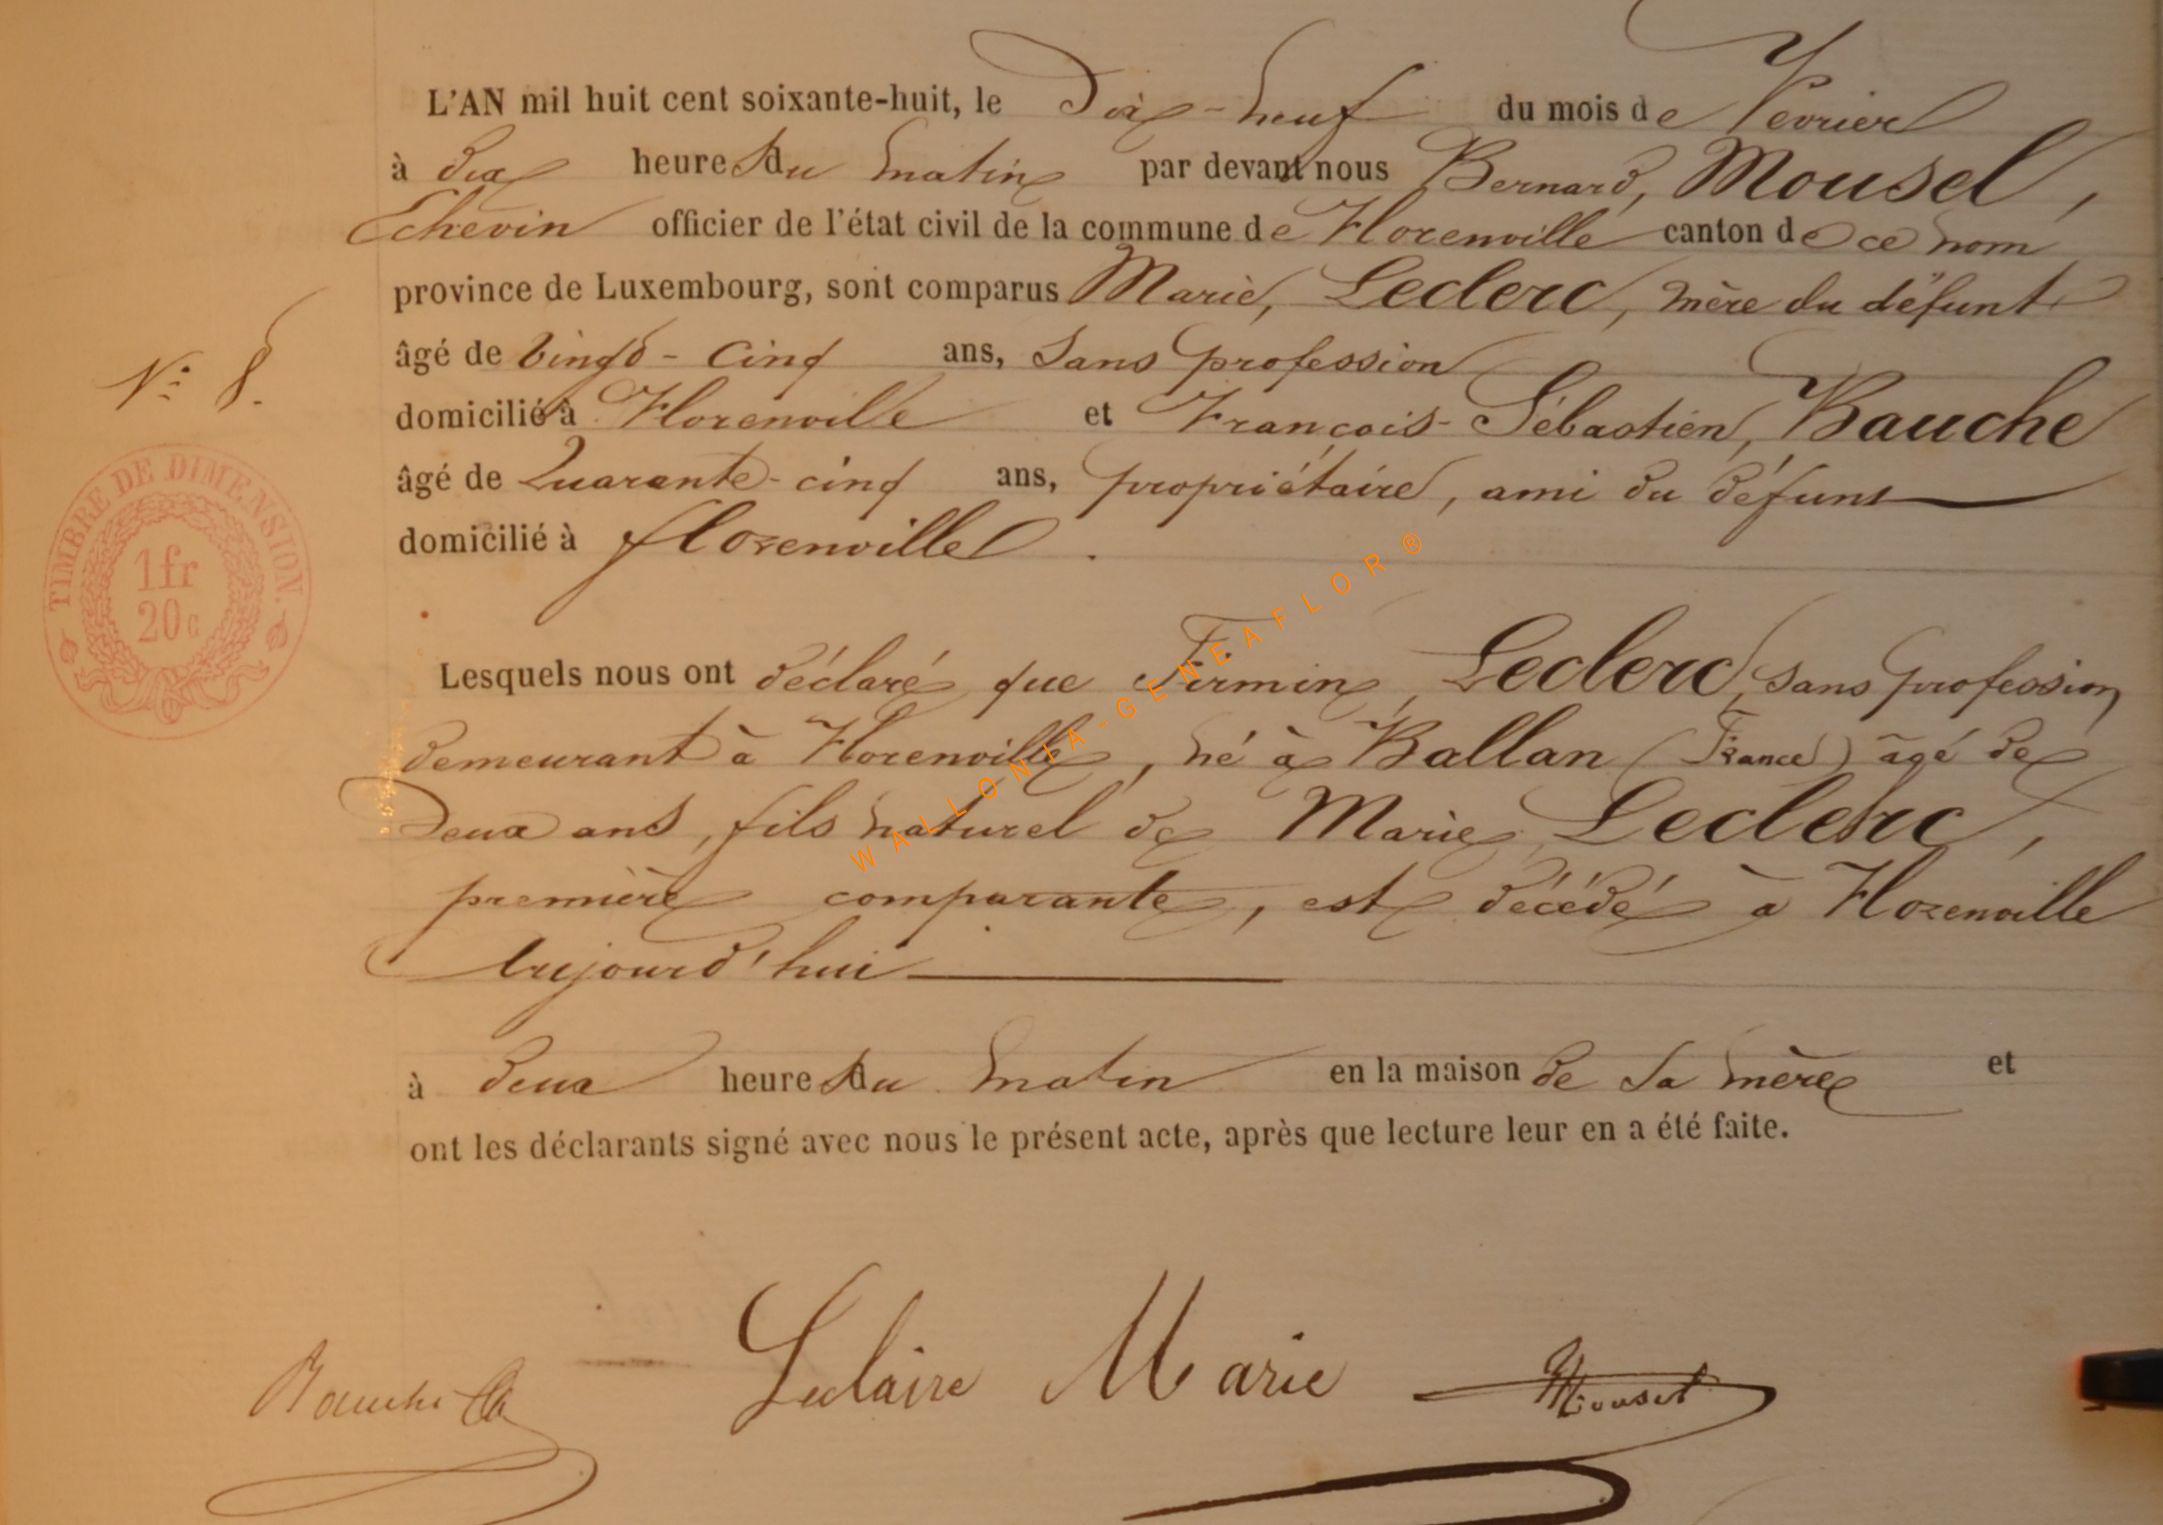 L'AN mil huit cent soixante-huit, le Dix-neuf du mois de Février
à dix heures du matin par devant nous Bernard, Mousel,
Echevin officier de l'état civil de la commune de Florenville canton de ce nom
province de Luxembourg, sont comparus Marie, Leclerc, mère du défunt
âgé de vingt-cinq ans, sans profession
domicilié à Florenville et François-Sébastien, Bauche
N° 8.
âgé de Quarante-cinq ans, propriétaire, ami du défunt
domicilié à florenville.
TIMBRE DE DIMENSION.
1fr
20c
Lesquels nous ont déclaré que Firmin, Leclerc, sans profession,
demeurant à Florenville, né à Ballan (France) âgé de
Deux ans, fils naturel de Marie, Leclerc,
première comparante, est décédé à Florenville
Aujourd'hui
à deux heures du matin en la maison de sa mère et
ont les déclarants signé avec nous le présent acte, après que lecture leur en a été faite.
Bauche Leclaire Marie Mousel
WALLONIA-GENEAFLOR®